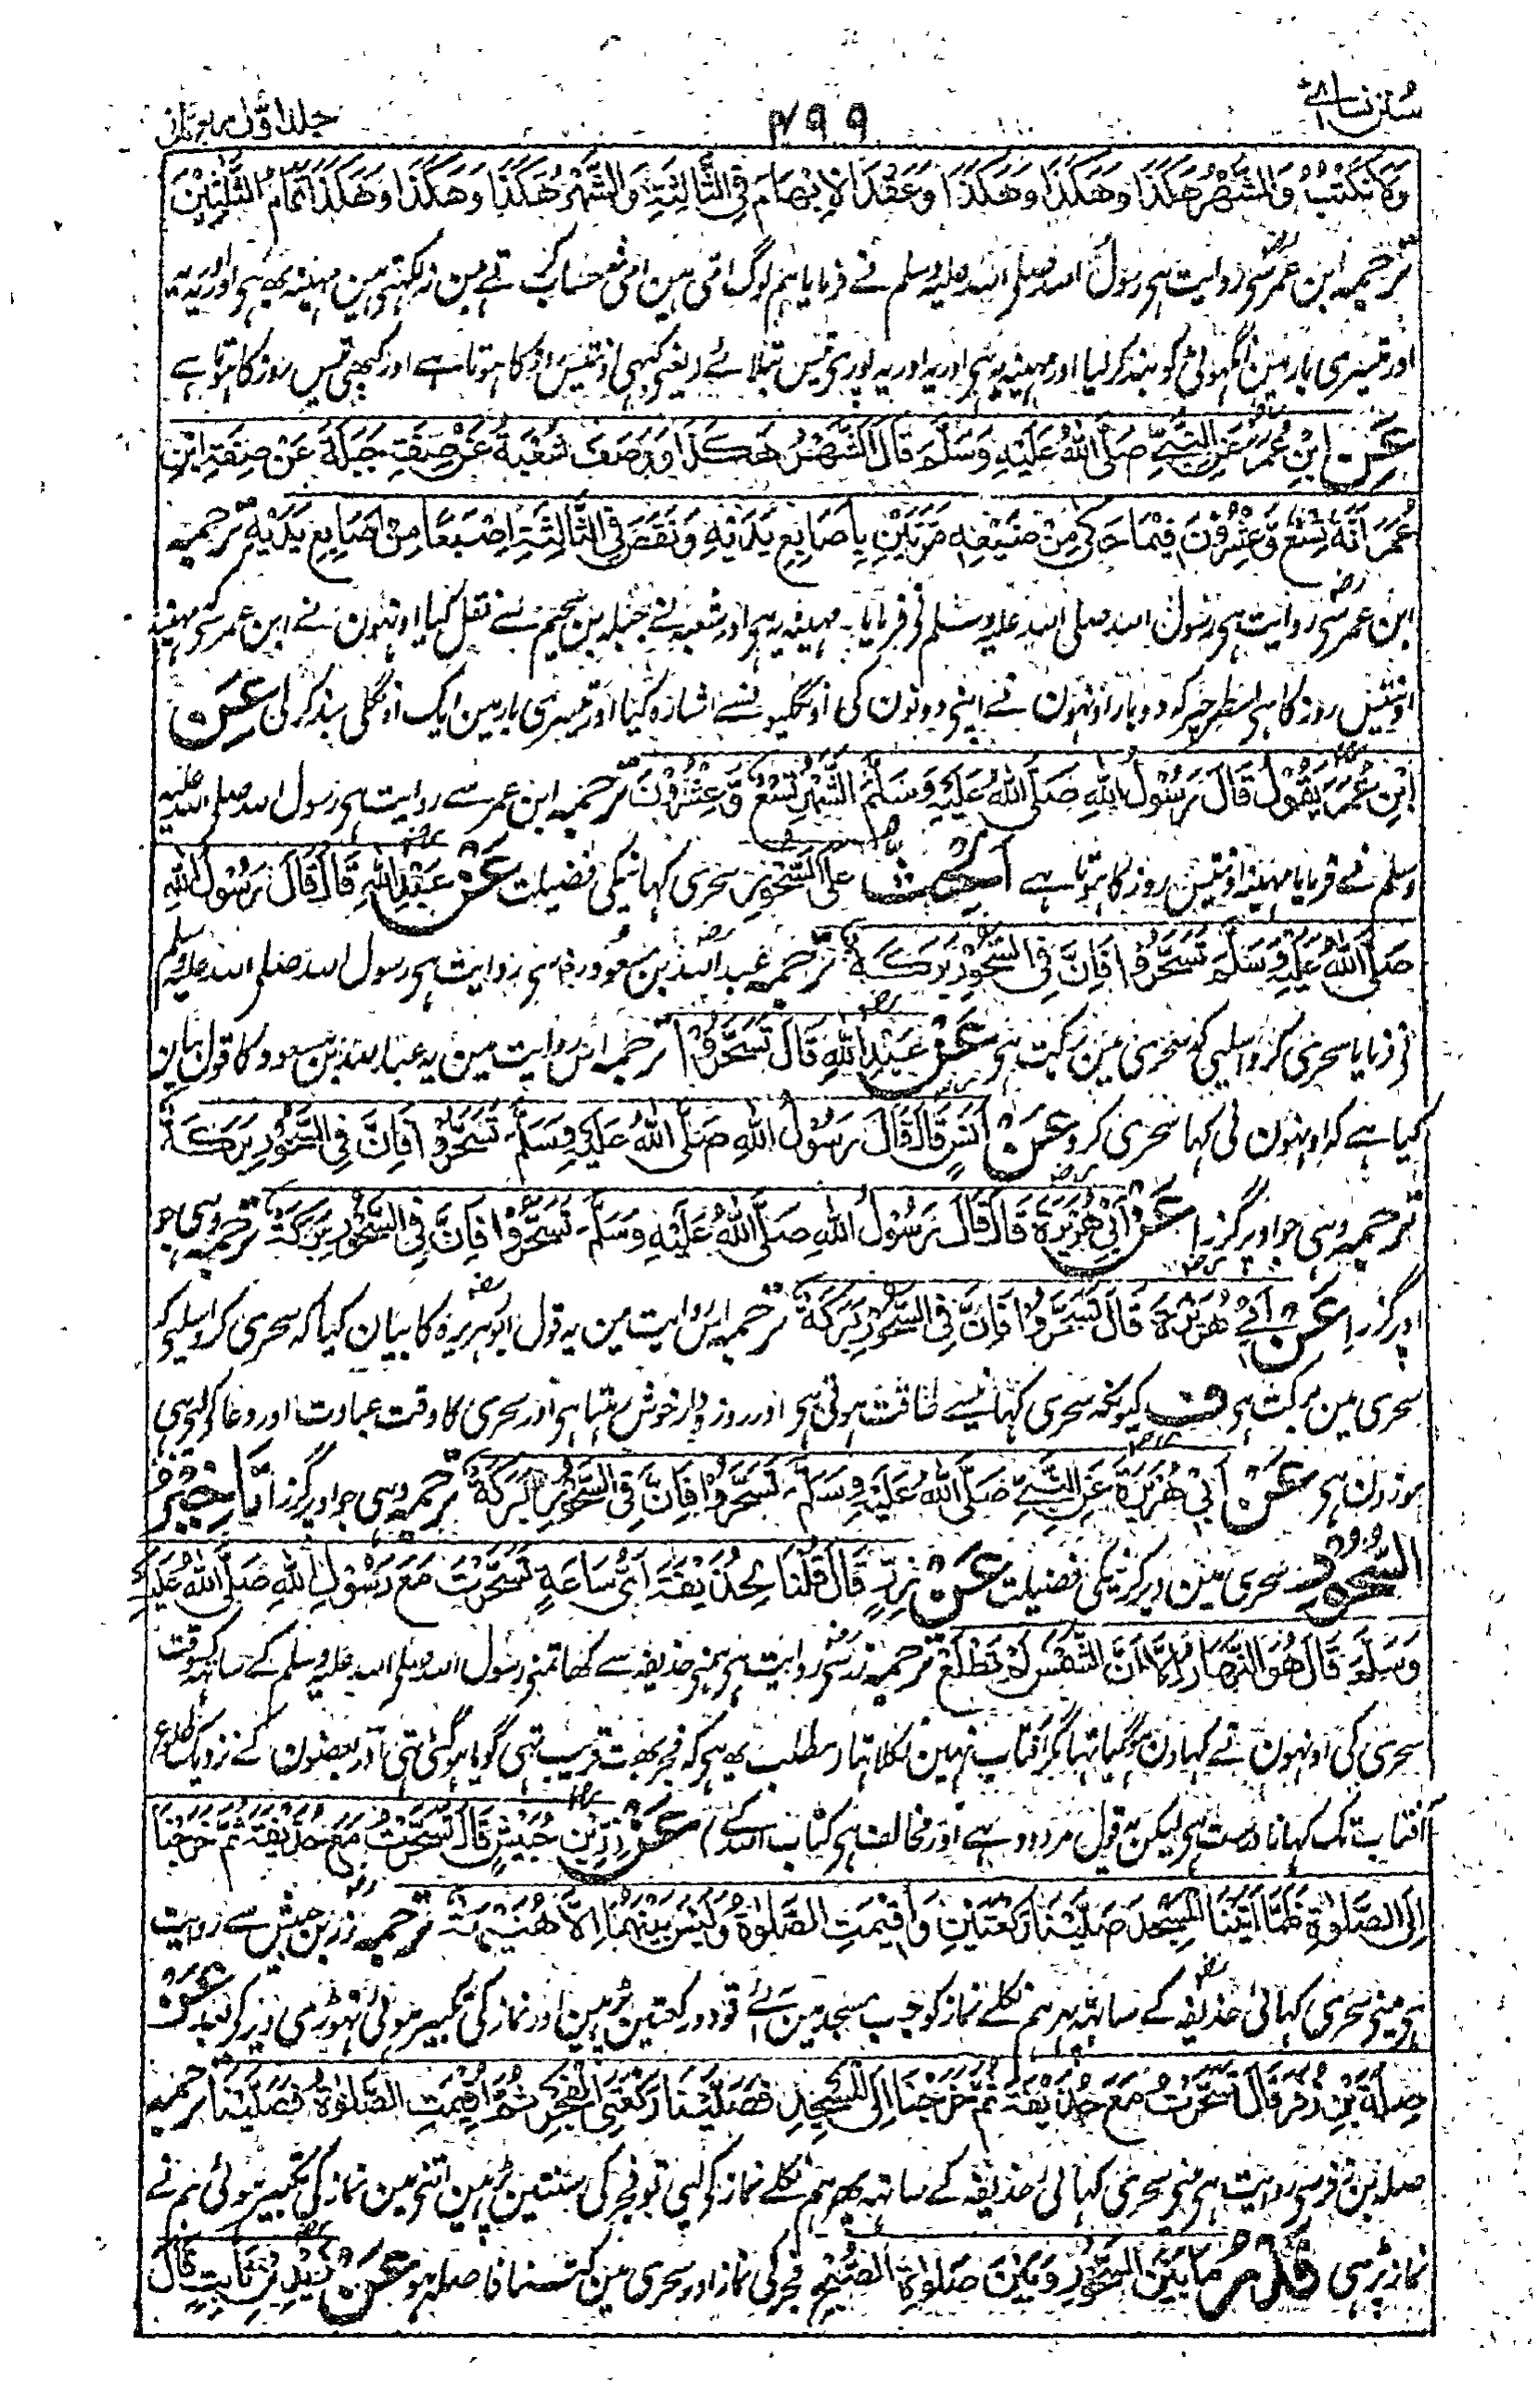 سنن نسائی
۴۹۹
جلد اول
وَلَا نَكْتُبُ وَالشَّهْرُ هٰكَذَا وَهٰكَذَا وَهٰكَذَا وَعَقَدَ الْاِبْهَامَ فِى الثَّالِثَةِ وَالشَّهْرُ هٰكَذَا وَهٰكَذَا وَهٰكَذَا تَمَامُ الثَّلٰثِيْنَ
ترجمہ ابن عمر سے روایت ہے رسول اللہ صلی اللہ علیہ وسلم نے فرمایا ہم لوگ امی ہین نہ حساب کرتے ہین نہ لکہتے ہین مہینہ یہ ہے اور یہ یہ
اور تیسری بار مین انگہوٹی کو بند کر لیا اور مہینہ یہ ہے اور یہ اور یہ پورے تیس بتلائے یعنے کبہی اونتیس روز کا ہوتا ہے اور کبہی تیس روز کا ہوتا ہے
عَنِ ابْنِ عُمَرَ عَنِ النَّبِيِّ صَلَّى اللهُ عَلَيْهِ وَسَلَّمَ قَالَ الشَّهْرُ هٰكَذَا وَوَصَفَ شُعْبَةُ عَنْ صِفَةِ جَبَلَةَ عَنْ صِفَةِ ابْنِ
عُمَرَ اَنَّهٗ تِسْعٌ وَّعِشْرُوْنَ فِيْمَا حَكٰى مِنْ صَنِيْعِهٖ مَرَّتَيْنِ بِاَصَابِعِ يَدَيْهِ وَنَقَصَ فِى الثَّالِثَةِ اِصْبَعًا مِنْ اَصَابِعِ يَدَيْهِ ترجمہ
ابن عمر سے روایت ہے رسول اللہ صلی اللہ علیہ وسلم نے فرمایا۔ مہینہ یہ ہے اور شعبہ نے جبلہ بن سحیم سے نقل کیا اونہون نے ابن عمر سے کہ مہینہ
اونتیس روز کا ہے اسطرح پر کہ دو بار اونہون نے اپنے دونون کی اونگلیونسے اشارہ کیا اور تیسری بار مین ایک اونگلی بند کر لی عَنِ
ابْنِ عُمَرَ يَقُوْلُ قَالَ رَسُوْلُ اللهِ صَلَّى اللهُ عَلَيْهِ وَسَلَّمَ الشَّهْرُ تِسْعٌ وَّعِشْرُوْنَ ترجمہ ابن عمر سے روایت ہے رسول اللہ صلی اللہ علیہ
وسلم نے فرمایا مہینہ اونتیس روز کا ہوتا ہے اَلْحَثُّ عَلَى السُّحُوْرِ سحری کہانیکی فضیلت عَنْ عَبْدِ اللهِ قَالَ قَالَ رَسُوْلُ اللهِ
صَلَّى اللهُ عَلَيْهِ وَسَلَّمَ تَسَحَّرُوْا فَاِنَّ فِى السُّحُوْرِ بَرَكَةً ترجمہ عبد اللہ بن مسعود رض سے روایت ہے رسول اللہ صلی اللہ علیہ وسلم
نے فرمایا سحری کرو اسلیے کہ سحری مین برکت ہے عَنْ عَبْدِ اللهِ قَالَ تَسَحَّرُوْا ترجمہ اس روایت مین یہ عبد اللہ بن مسعود کا قول بیان
کیا ہے کہ اونہون نی کہا سحری کرو عَنْ اَنَسٍ قَالَ قَالَ رَسُوْلُ اللهِ صَلَّى اللهُ عَلَيْهِ وَسَلَّمَ تَسَحَّرُوْا فَاِنَّ فِى السُّحُوْرِ بَرَكَةً
ترجمہ وہی جو اوپر گزرا عَنْ اَبِيْ هُرَيْرَةَ قَالَ قَالَ رَسُوْلُ اللهِ صَلَّى اللهُ عَلَيْهِ وَسَلَّمَ تَسَحَّرُوْا فَاِنَّ فِى السُّحُوْرِ بَرَكَةً ترجمہ وہی جو
اوپر گزرا عَنْ اَبِيْ هُرَيْرَةَ قَالَ تَسَحَّرُوْا فَاِنَّ فِى السُّحُوْرِ بَرَكَةً ترجمہ اس روایت مین یہ قول ابوہریرہ کا بیان کیا کہ سحری کرو اسلیے کہ
سحری مین برکت ہے ف کیونکہ سحری کہانیسے طاقت ہوتی ہے اور روزہ دار خوش رہتا ہے اور سحری کا وقت عبادت اور دعا کے لیے بہی
موزون ہے عَنْ اَبِيْ هُرَيْرَةَ عَنِ النَّبِيِّ صَلَّى اللهُ عَلَيْهِ وَسَلَّمَ تَسَحَّرُوْا فَاِنَّ فِى السُّحُوْرِ بَرَكَةً ترجمہ وہی جو اوپر گزرا تَاخِيْرُ
السُّحُوْرِ سحری مین دیر کرنیکی فضیلت عَنْ زِرٍّ قَالَ قُلْنَا لِحُذَيْفَةَ اَىَّ سَاعَةٍ تَسَحَّرْتَ مَعَ رَسُوْلِ اللهِ صَلَّى اللهُ عَلَيْهِ
وَسَلَّمَ قَالَ هُوَ النَّهَارُ اِلَّا اَنَّ الشَّمْسَ لَمْ تَطْلُعْ ترجمہ زر سے روایت ہے ہمنے حذیفہ سے کہا تمنے رسول اللہ صلی اللہ علیہ وسلم کے ساتہ کسوقت
سحری کی اونہون نے کہا دن ہو گیا تہا مگر آفتاب نہین نکلا تہا (مطلب یہ ہے کہ فجر بہت قریب تہی گویا ہو گئی تہی اور بعضون کے نزدیک طلوع
آفتاب تک کہانا درست ہے لیکن یہ قول مردود ہے اور مخالف ہے کتاب اللہ کے) عَنْ زِرِّ بْنِ حُبَيْشٍ قَالَ تَسَحَّرْتُ مَعَ حُذَيْفَةَ ثُمَّ خَرَجْنَا
اِلَى الصَّلٰوةِ فَلَمَّا اَتَيْنَا الْمَسْجِدَ صَلَّيْنَا رَكْعَتَيْنِ وَاُقِيْمَتِ الصَّلٰوةُ وَلَيْسَ بَيْنَهُمَا اِلَّا هُنَيْهَةٌ ترجمہ زر بن حبیش سے روایت
ہے مینے سحری کہائی حذیفہ کے ساتہہ پہر ہم نکلے نماز کو جب مسجد مین آئے تو دو رکعتین پڑہین اور نماز کی تکبیر ہوئی تہوڑی دیر کے بعد عَنْ
صِلَةَ بْنِ زُفَرَ قَالَ تَسَحَّرْتُ مَعَ حُذَيْفَةَ ثُمَّ خَرَجْنَا اِلَى الْمَسْجِدِ فَصَلَّيْنَا رَكْعَتَىِ الْفَجْرِ ثُمَّ اُقِيْمَتِ الصَّلٰوةُ فَصَلَّيْنَا ترجمہ
صلہ بن زفر سے روایت ہے مینے سحری کہائی حذیفہ کے ساتہہ پہر ہم نکلے نماز کے لیے تو فجر کی سنتین پڑہین اتنے مین نماز کی تکبیر ہوئی ہم نے
نماز پڑہی قَدْرُ مَا بَيْنَ السُّحُوْرِ وَبَيْنَ صَلٰوةِ الصُّبْحِ فجر کی نماز اور سحری مین کتنا فاصلہ ہو عَنْ زَيْدِ بْنِ ثَابِتٍ قَالَ